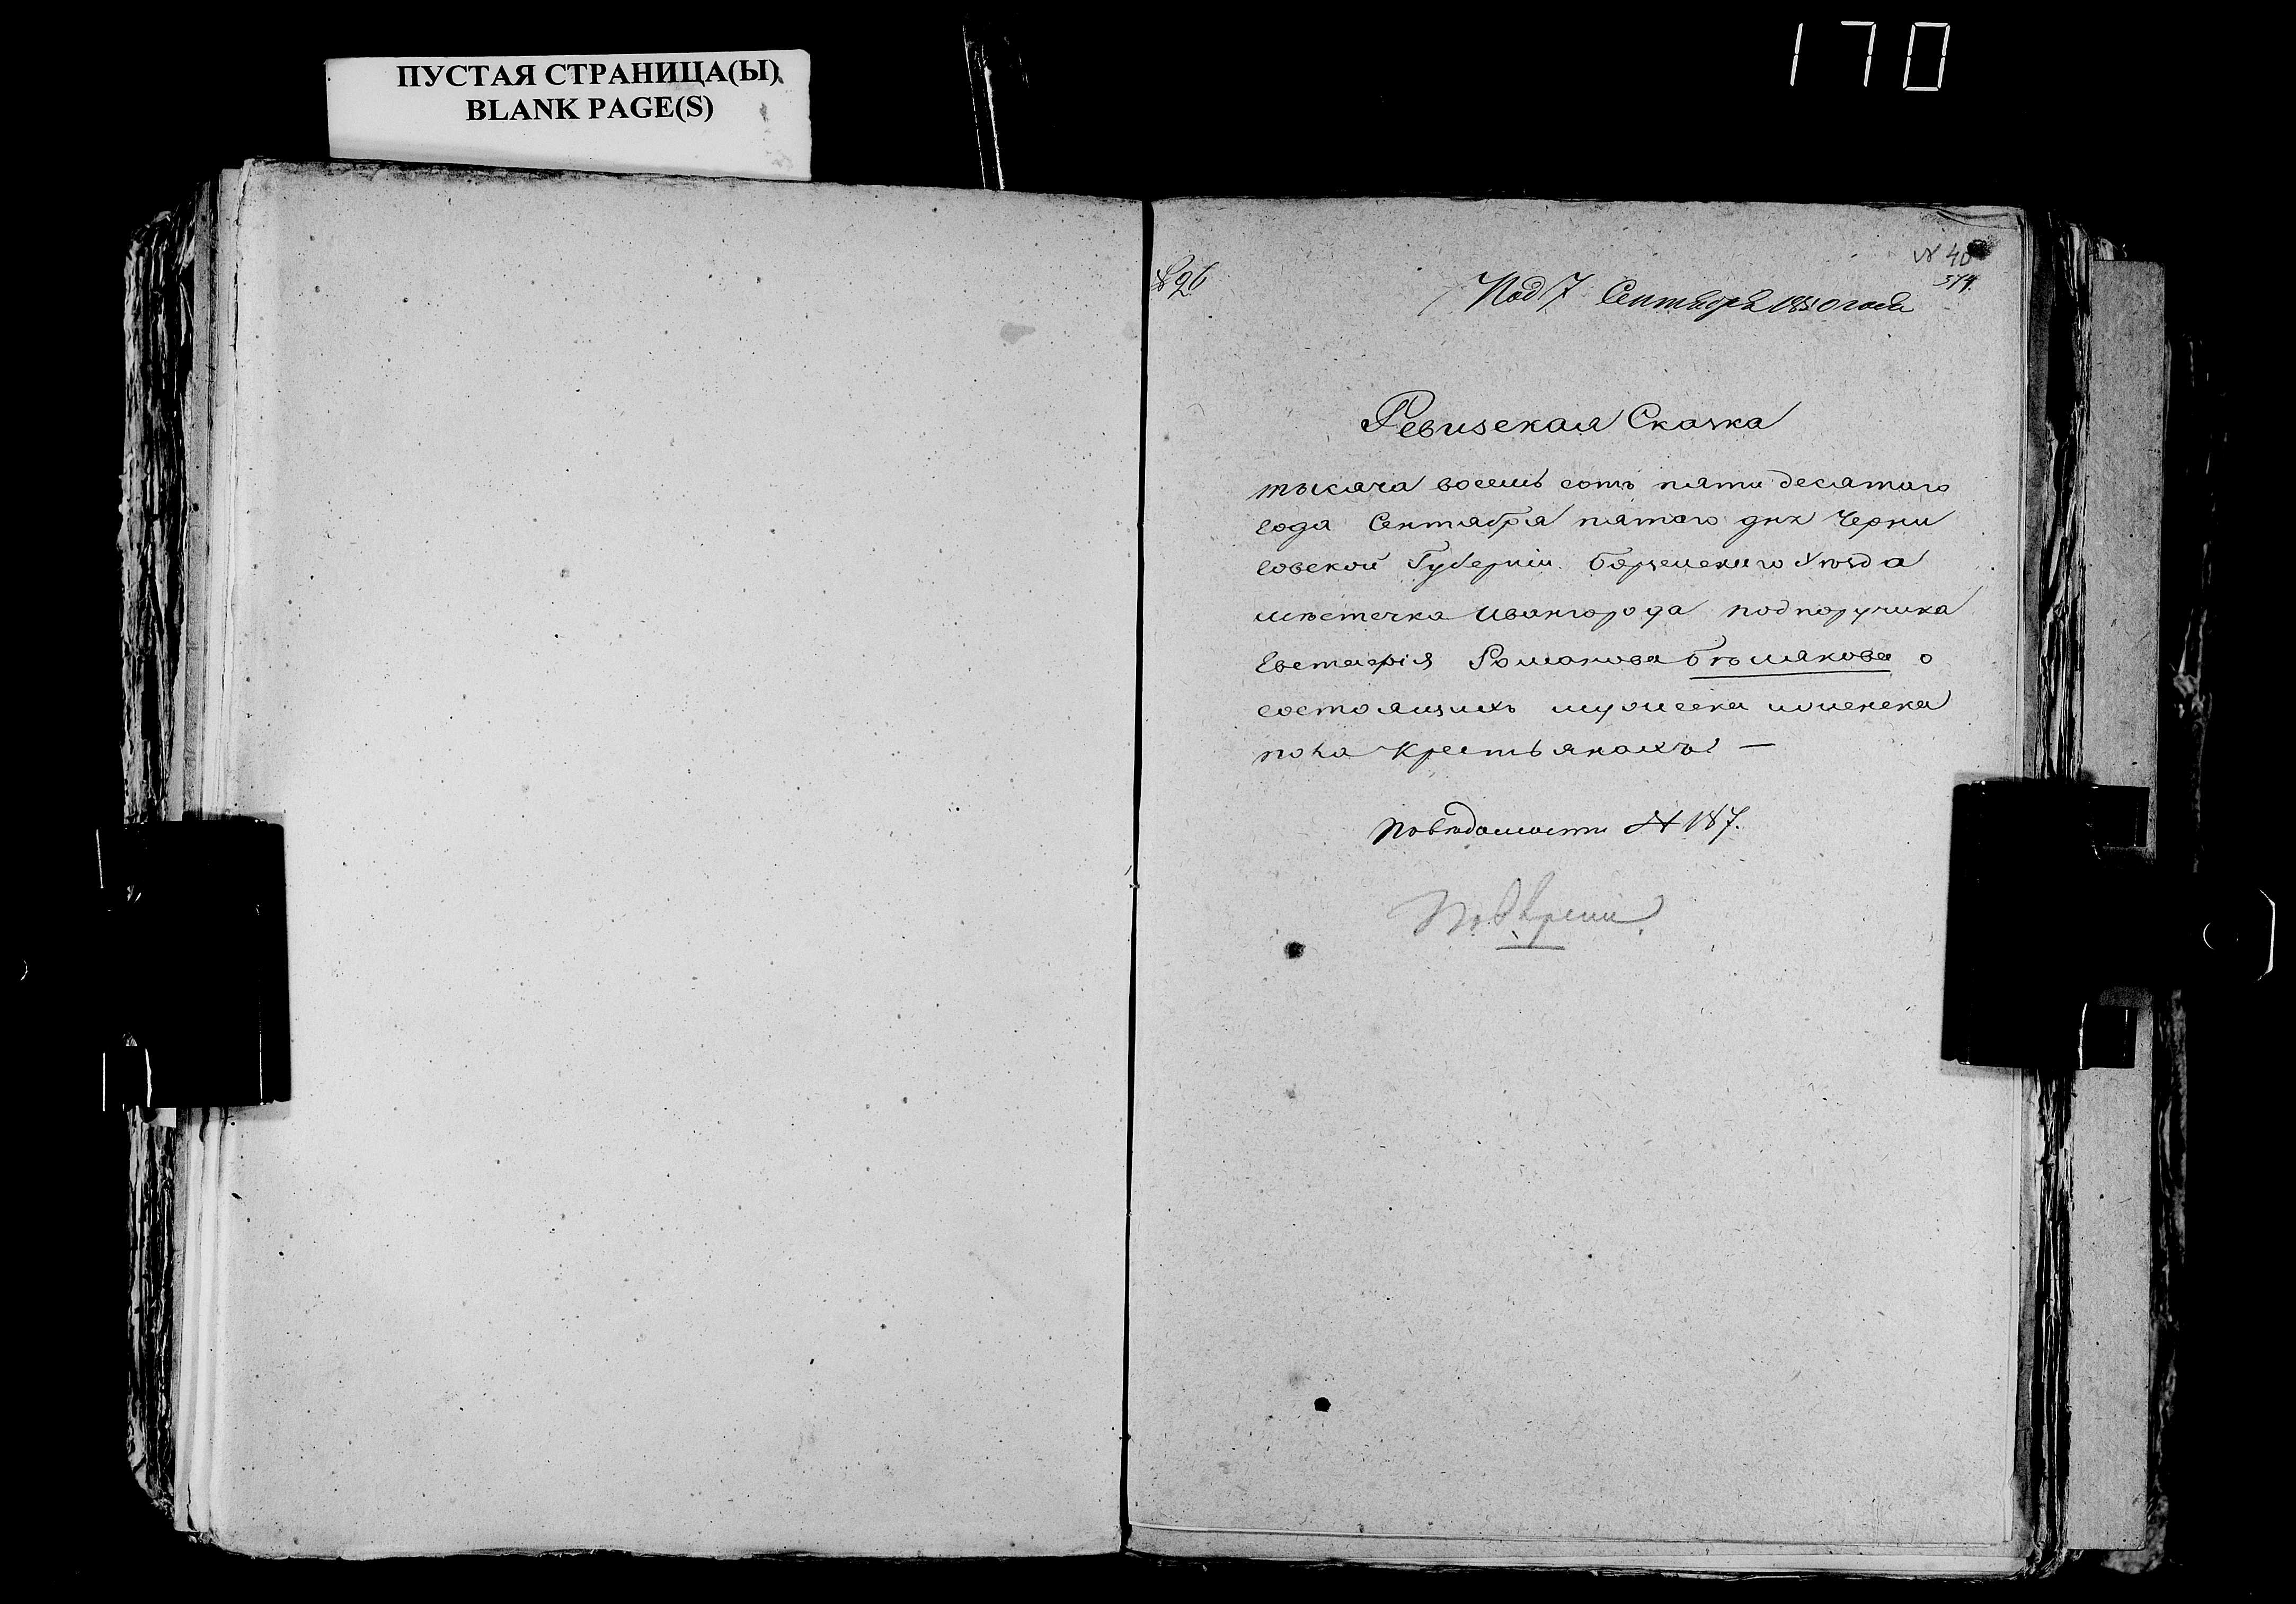 170
ПУСТАЯ СТРАНИЦА(Ы)
BLANK PAGE(S)
№ 40
374.
№ 96
Под 7 Сентября 1850 года
Ревизская Сказка
тысяча восемь сотъ пяти десятаго
года Сентября пятого дня Черни
говской Губерніи Борзенскаго Уѣзда
мѣстечка Ивангорода подпоручика
Евстафія Романова Бѣлякова о
состоящихъ мужеска и женска
пола Крестьянахъ —
По вѣдомости № 187.